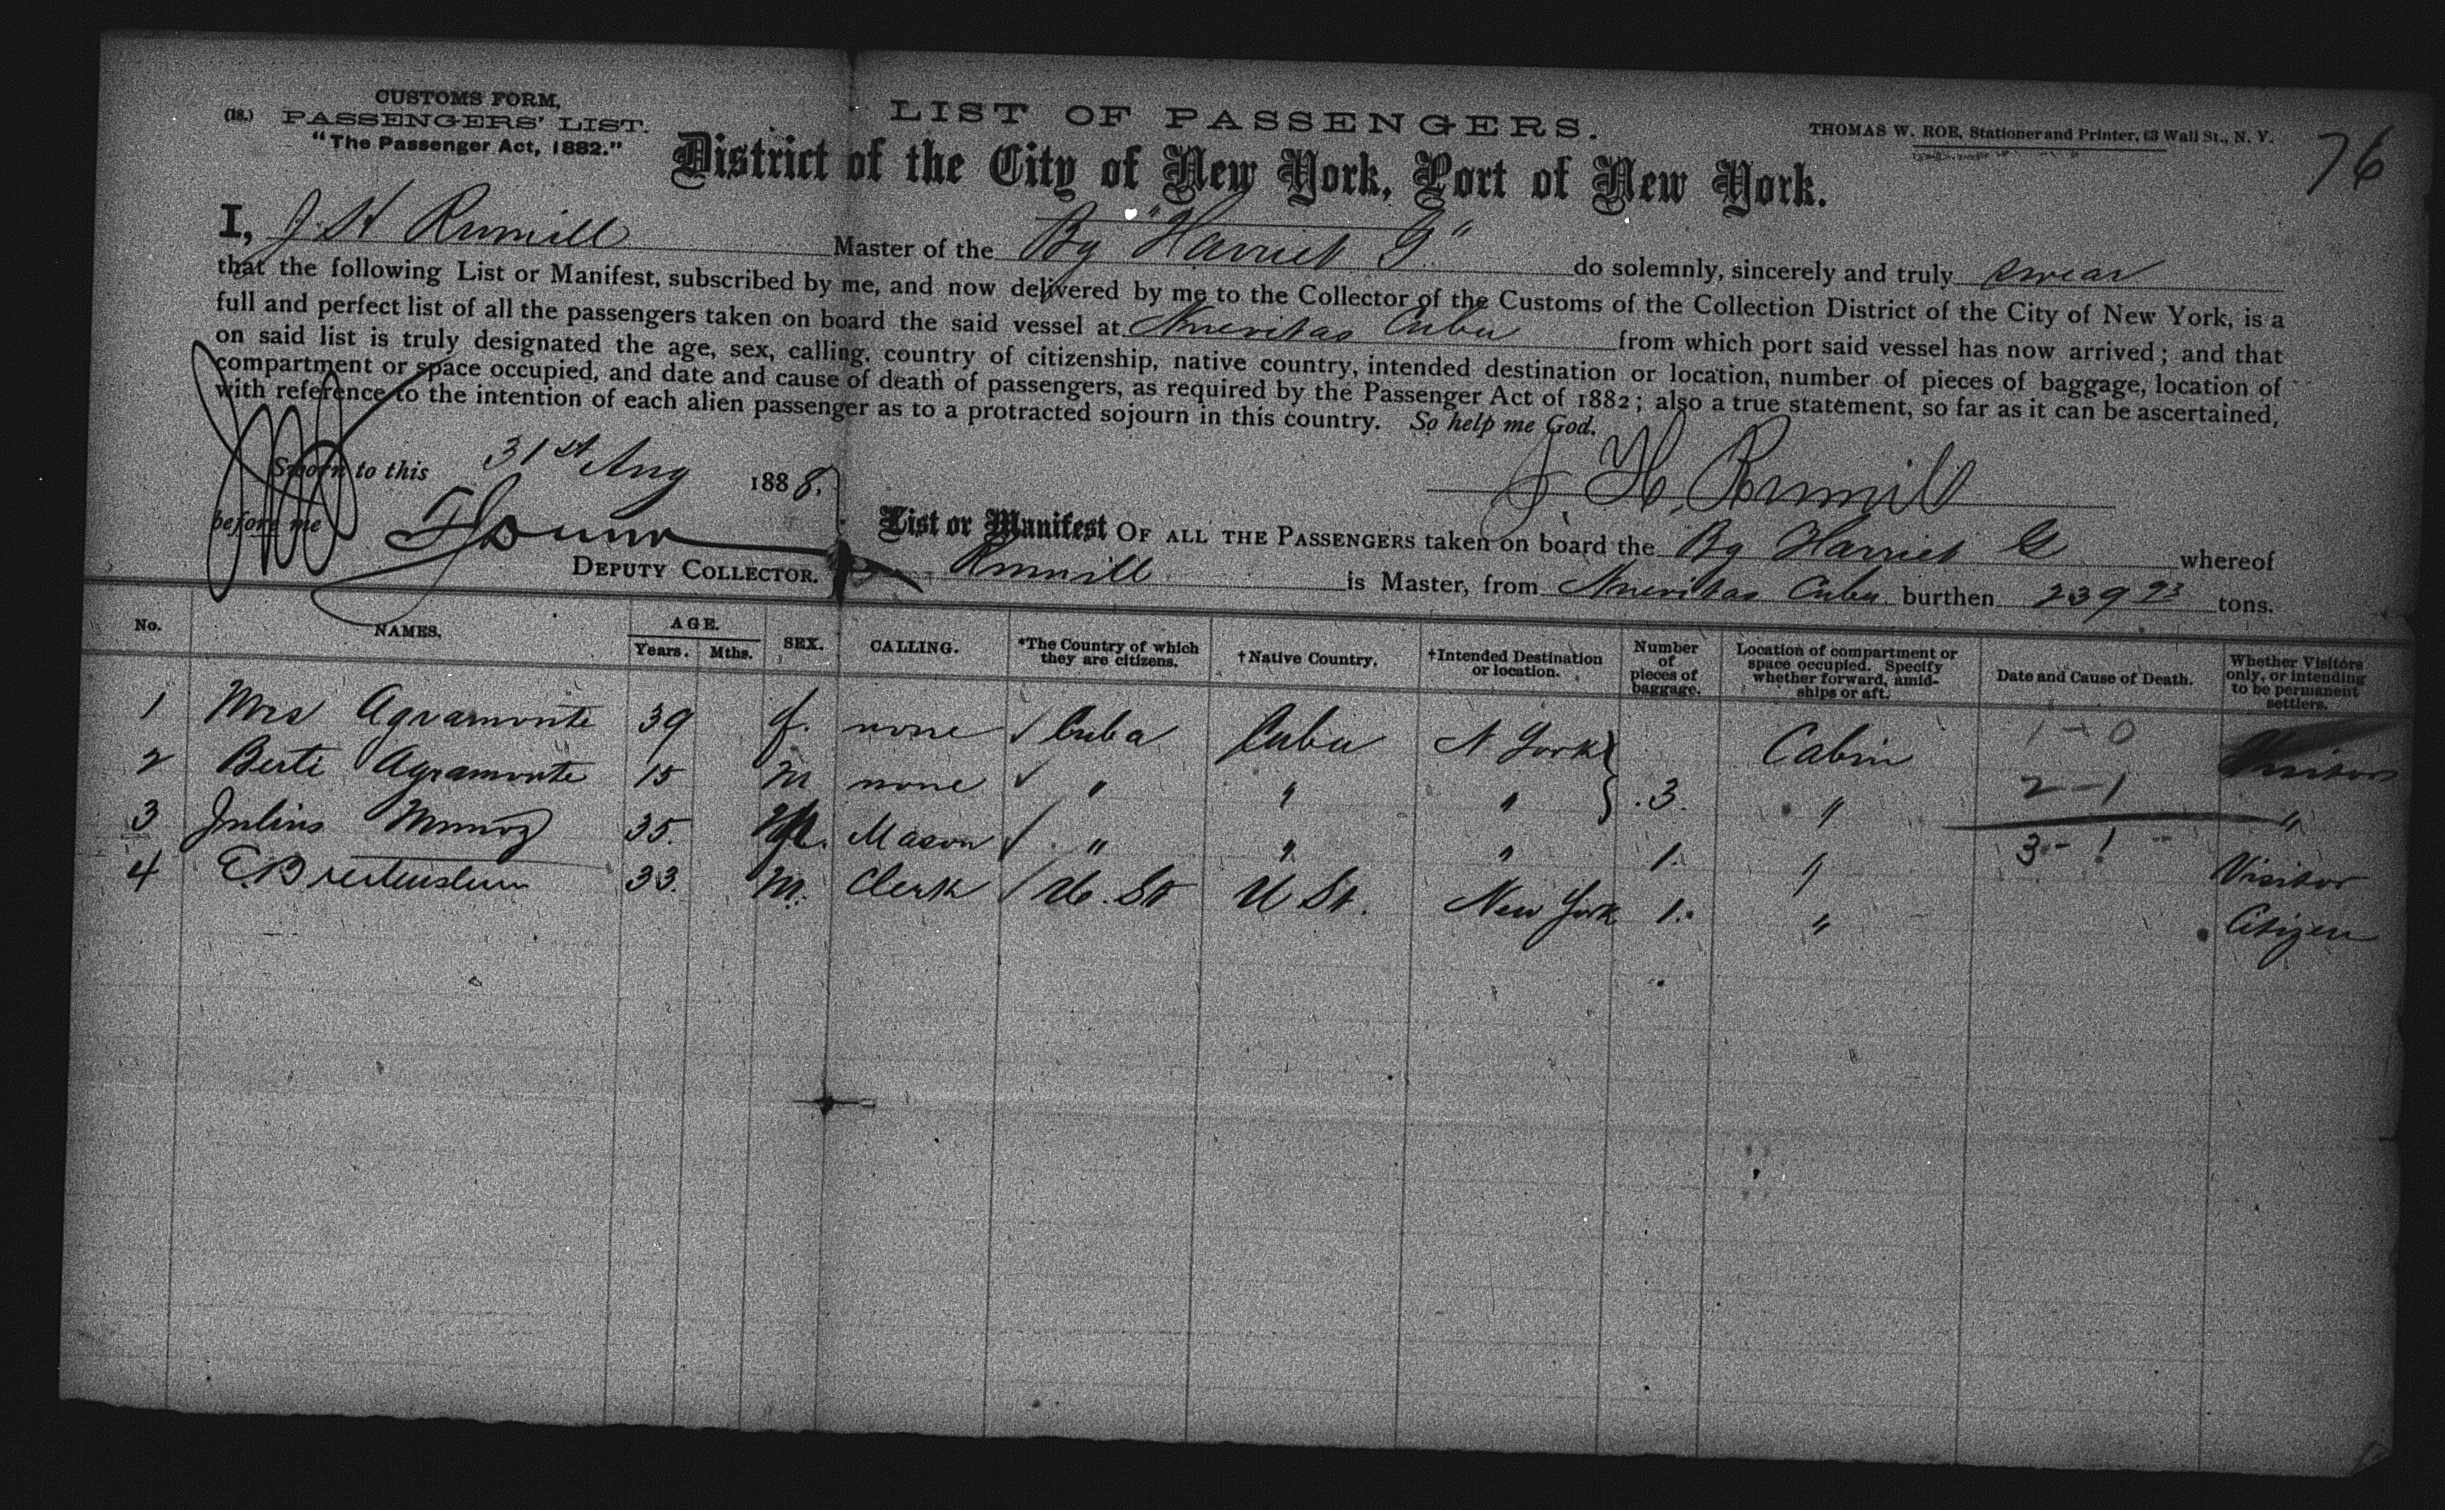 CUSTOMS FORM,
(18.) PASSENGERS' LIST.
"The Passenger Act, 1882."
LIST OF PASSENGERS.
THOMAS W. ROE, Stationer and Printer, 63 Wall St., N. Y.
76
District of the City of New York, Port of New York.
I, J. H Rumill Master of the Bg "Harriet G" do solemnly, sincerely and truly swear
that the following List or Manifest, subscribed by me, and now delivered by me to the Collector of the Customs of the Collection District of the City of New York, is a
full and perfect list of all the passengers taken on board the said vessel at Nuevitas Cuba from which port said vessel has now arrived; and that
on said list is truly designated the age, sex, calling, country of citizenship, native country, intended destination or location, number of pieces of baggage, location of
compartment or space occupied, and date and cause of death of passengers, as required by the Passenger Act of 1882; also a true statement, so far as it can be ascertained,
with reference to the intention of each alien passenger as to a protracted sojourn in this country. So help me God.
Sworn to this 31st Aug 1888.
J. H. Rumill
before me
DEPUTY COLLECTOR.
List or Manifest OF ALL THE PASSENGERS taken on board the Bg Harriet G whereof
Rumill is Master, from Nuevitas Cuba burthen 239 93 tons.
No. NAMES. AGE. Years. Mths. SEX. CALLING. *The Country of which they are citizens. †Native Country. †Intended Destination or location. Number of pieces of baggage. Location of compartment or space occupied. Specify whether forward, amidships or aft. Date and Cause of Death. Whether Visitors only, or intending to be permanent settlers.
1 Mrs Agramonte 39 f. none Cuba Cuba N York Cabin 1-0 Visitors
2 Berti Agramonte 15 M none " " " 3. " 2-1 "
3 Julius Munoz 35. M. Mason " " " 1. " 3-1 Visitor
4 33. M. Clerk U. St U St. New York 1. " Citizen